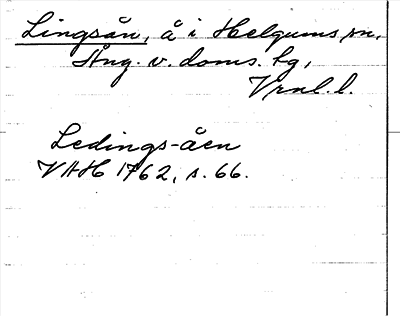 Lingsån, å i Helgums sn,
Ång. v. doms. lg,
Vrnl. l.
Ledings-åen
VAH 1762, s. 66.